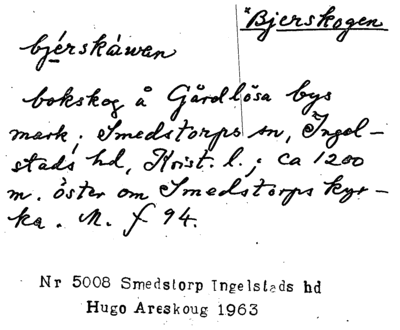 *Bjerskogen
bjérskáwan
bokskog å Gårdlösa bys
mark, Smedstorps sn, Ingel-
stads hd, Krist. l.; ca 1200
m. öster om Smedstorps kyr-
ka. M. f 94.
Nr 5008 Smedstorp Ingelstads hd
Hugo Areskoug 1963